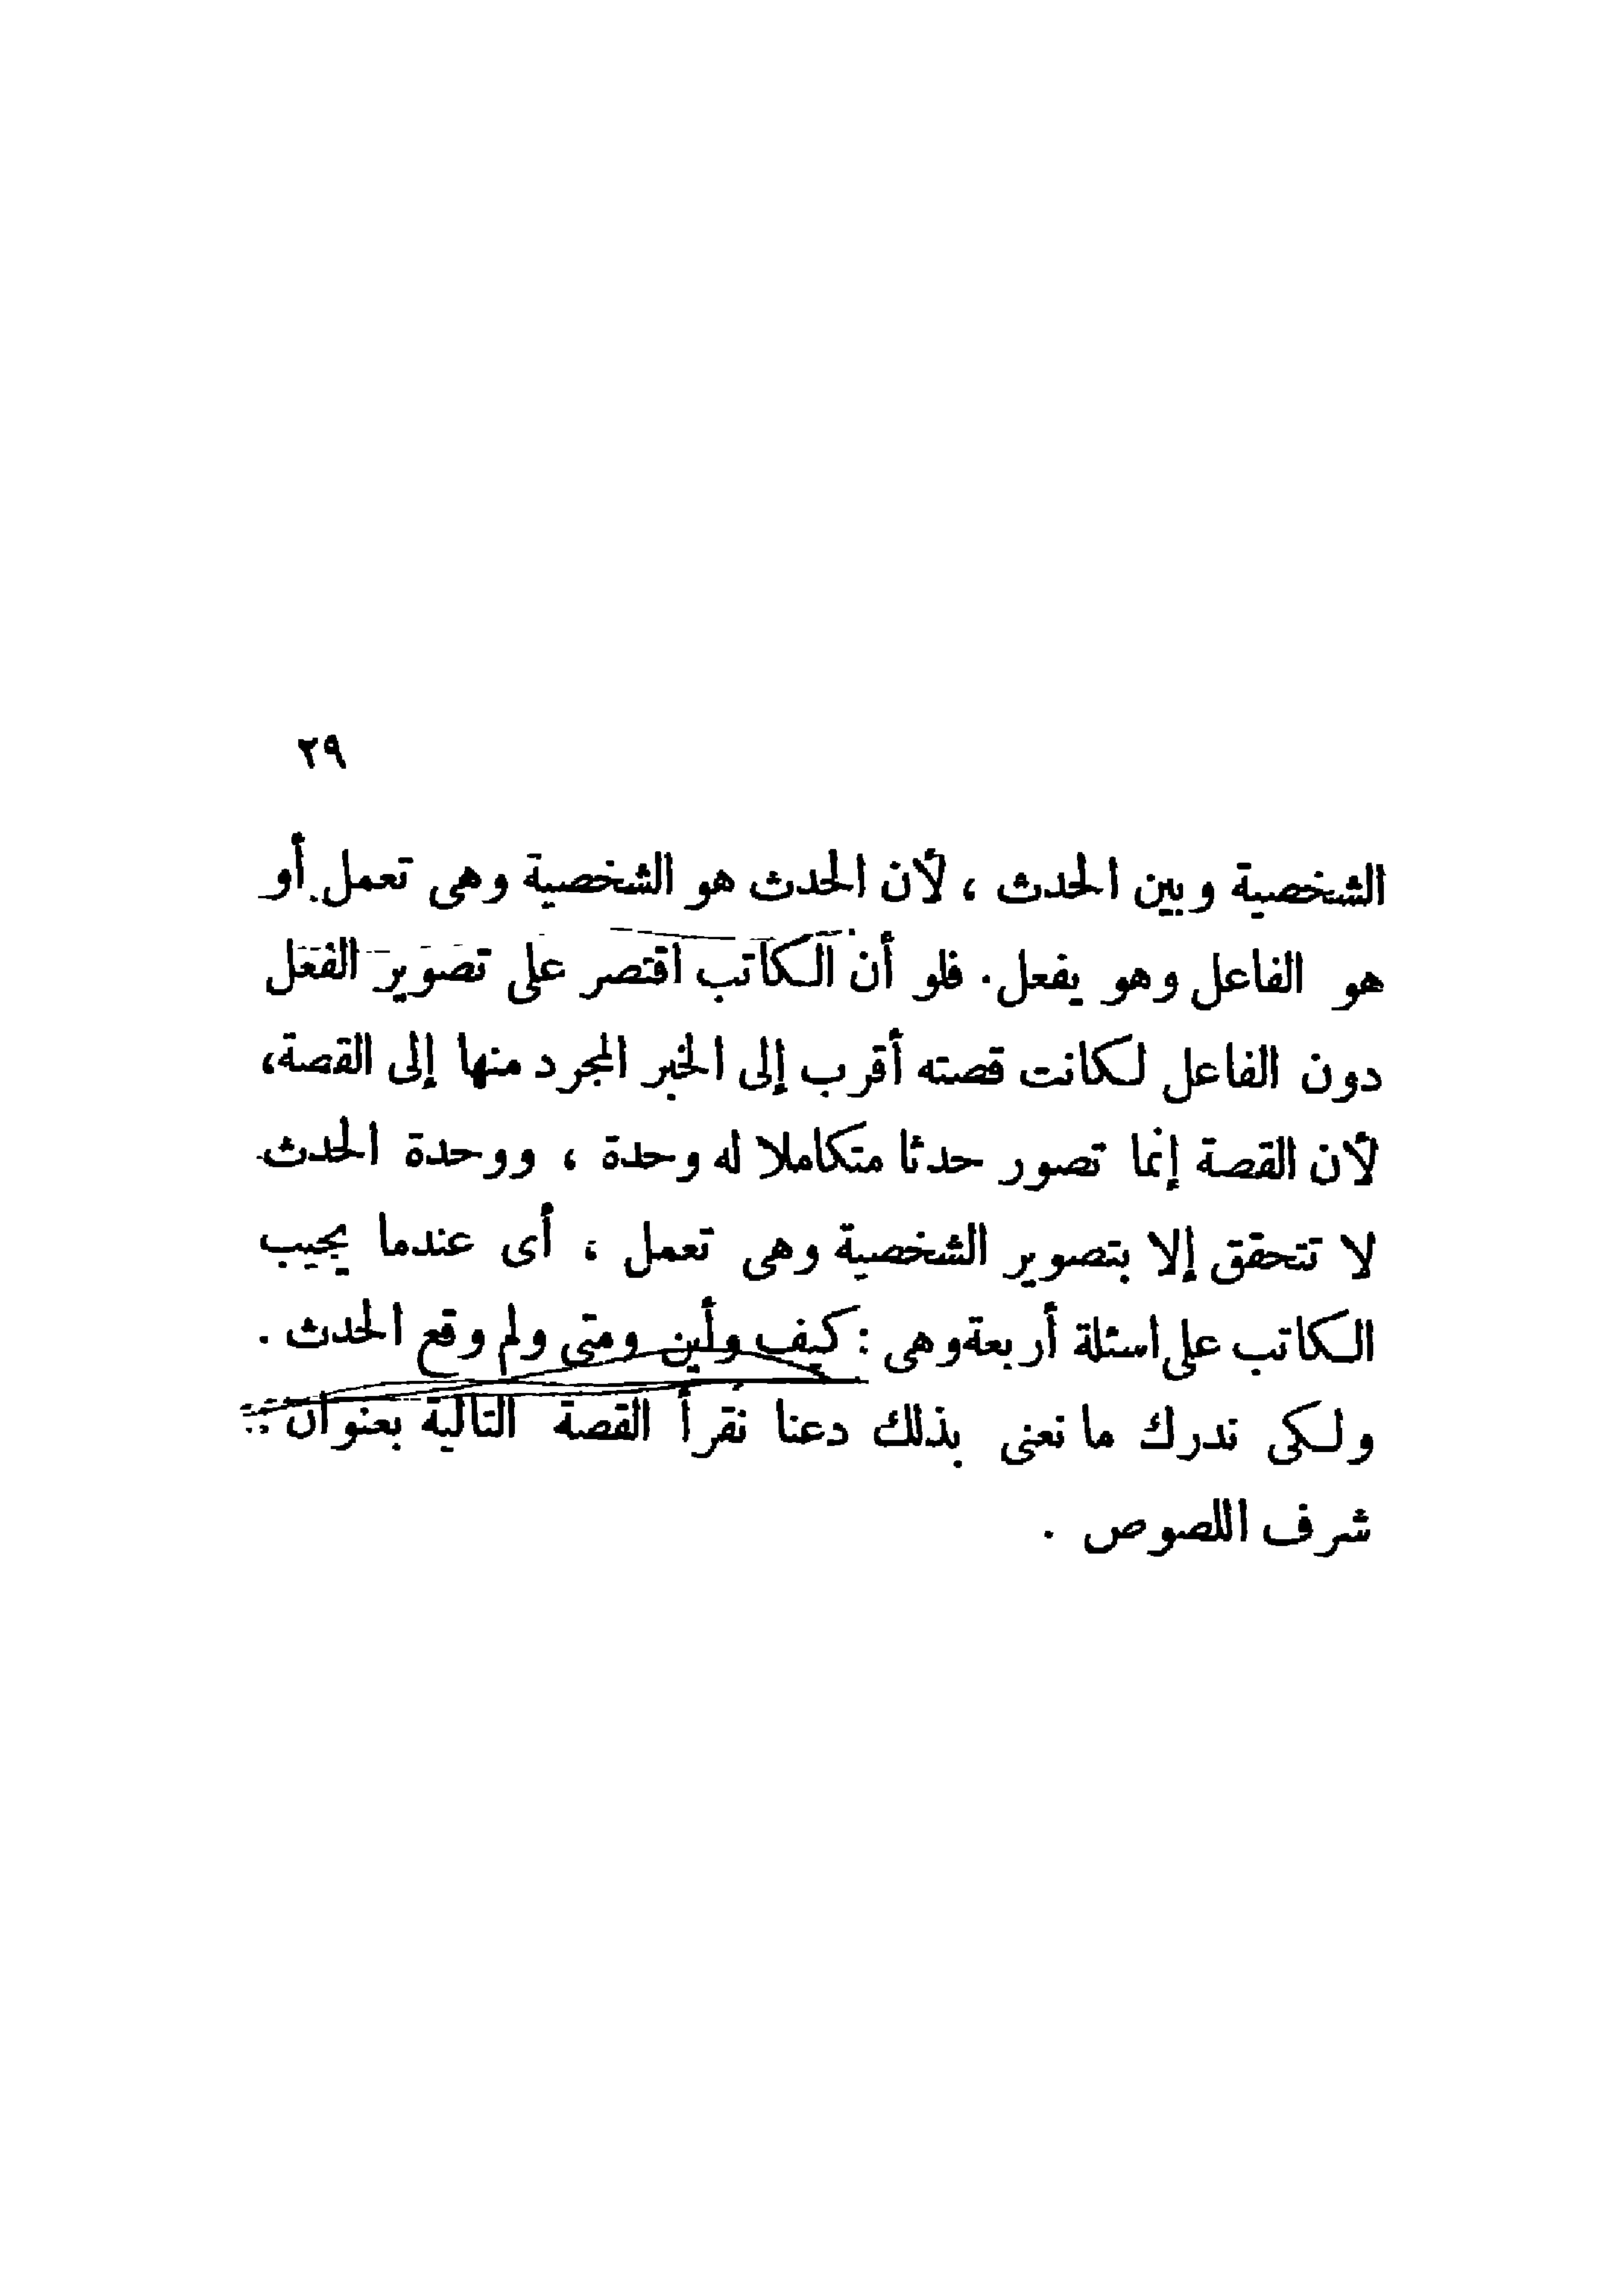 ٢٩
الشخصية وبين الحدث ، لأن الحدث هو الشخصية وهى تعمل أو
هو الفاعل وهو يفعل . فلو أن الكاتب اقتصر على تصوير الفعل
دون الفاعل لكانت قصته أقرب إلى الخبر المجرد منها إلى القصة،
لأن القصة إنما تصور حدثا متكاملا له وحدة ، ووحدة الحدث
لا تتحقق إلا بتصوير الشخصية وهى تعمل ، أى عندما يجيب
الكاتب على اسئلة أربعة وهى : كيف وأين ومتى ولم وقع الحدث .
ولكى ندرك ما نعنى بذلك دعنا نقرأ القصة التالية بعنوان :
شرف اللصوص .